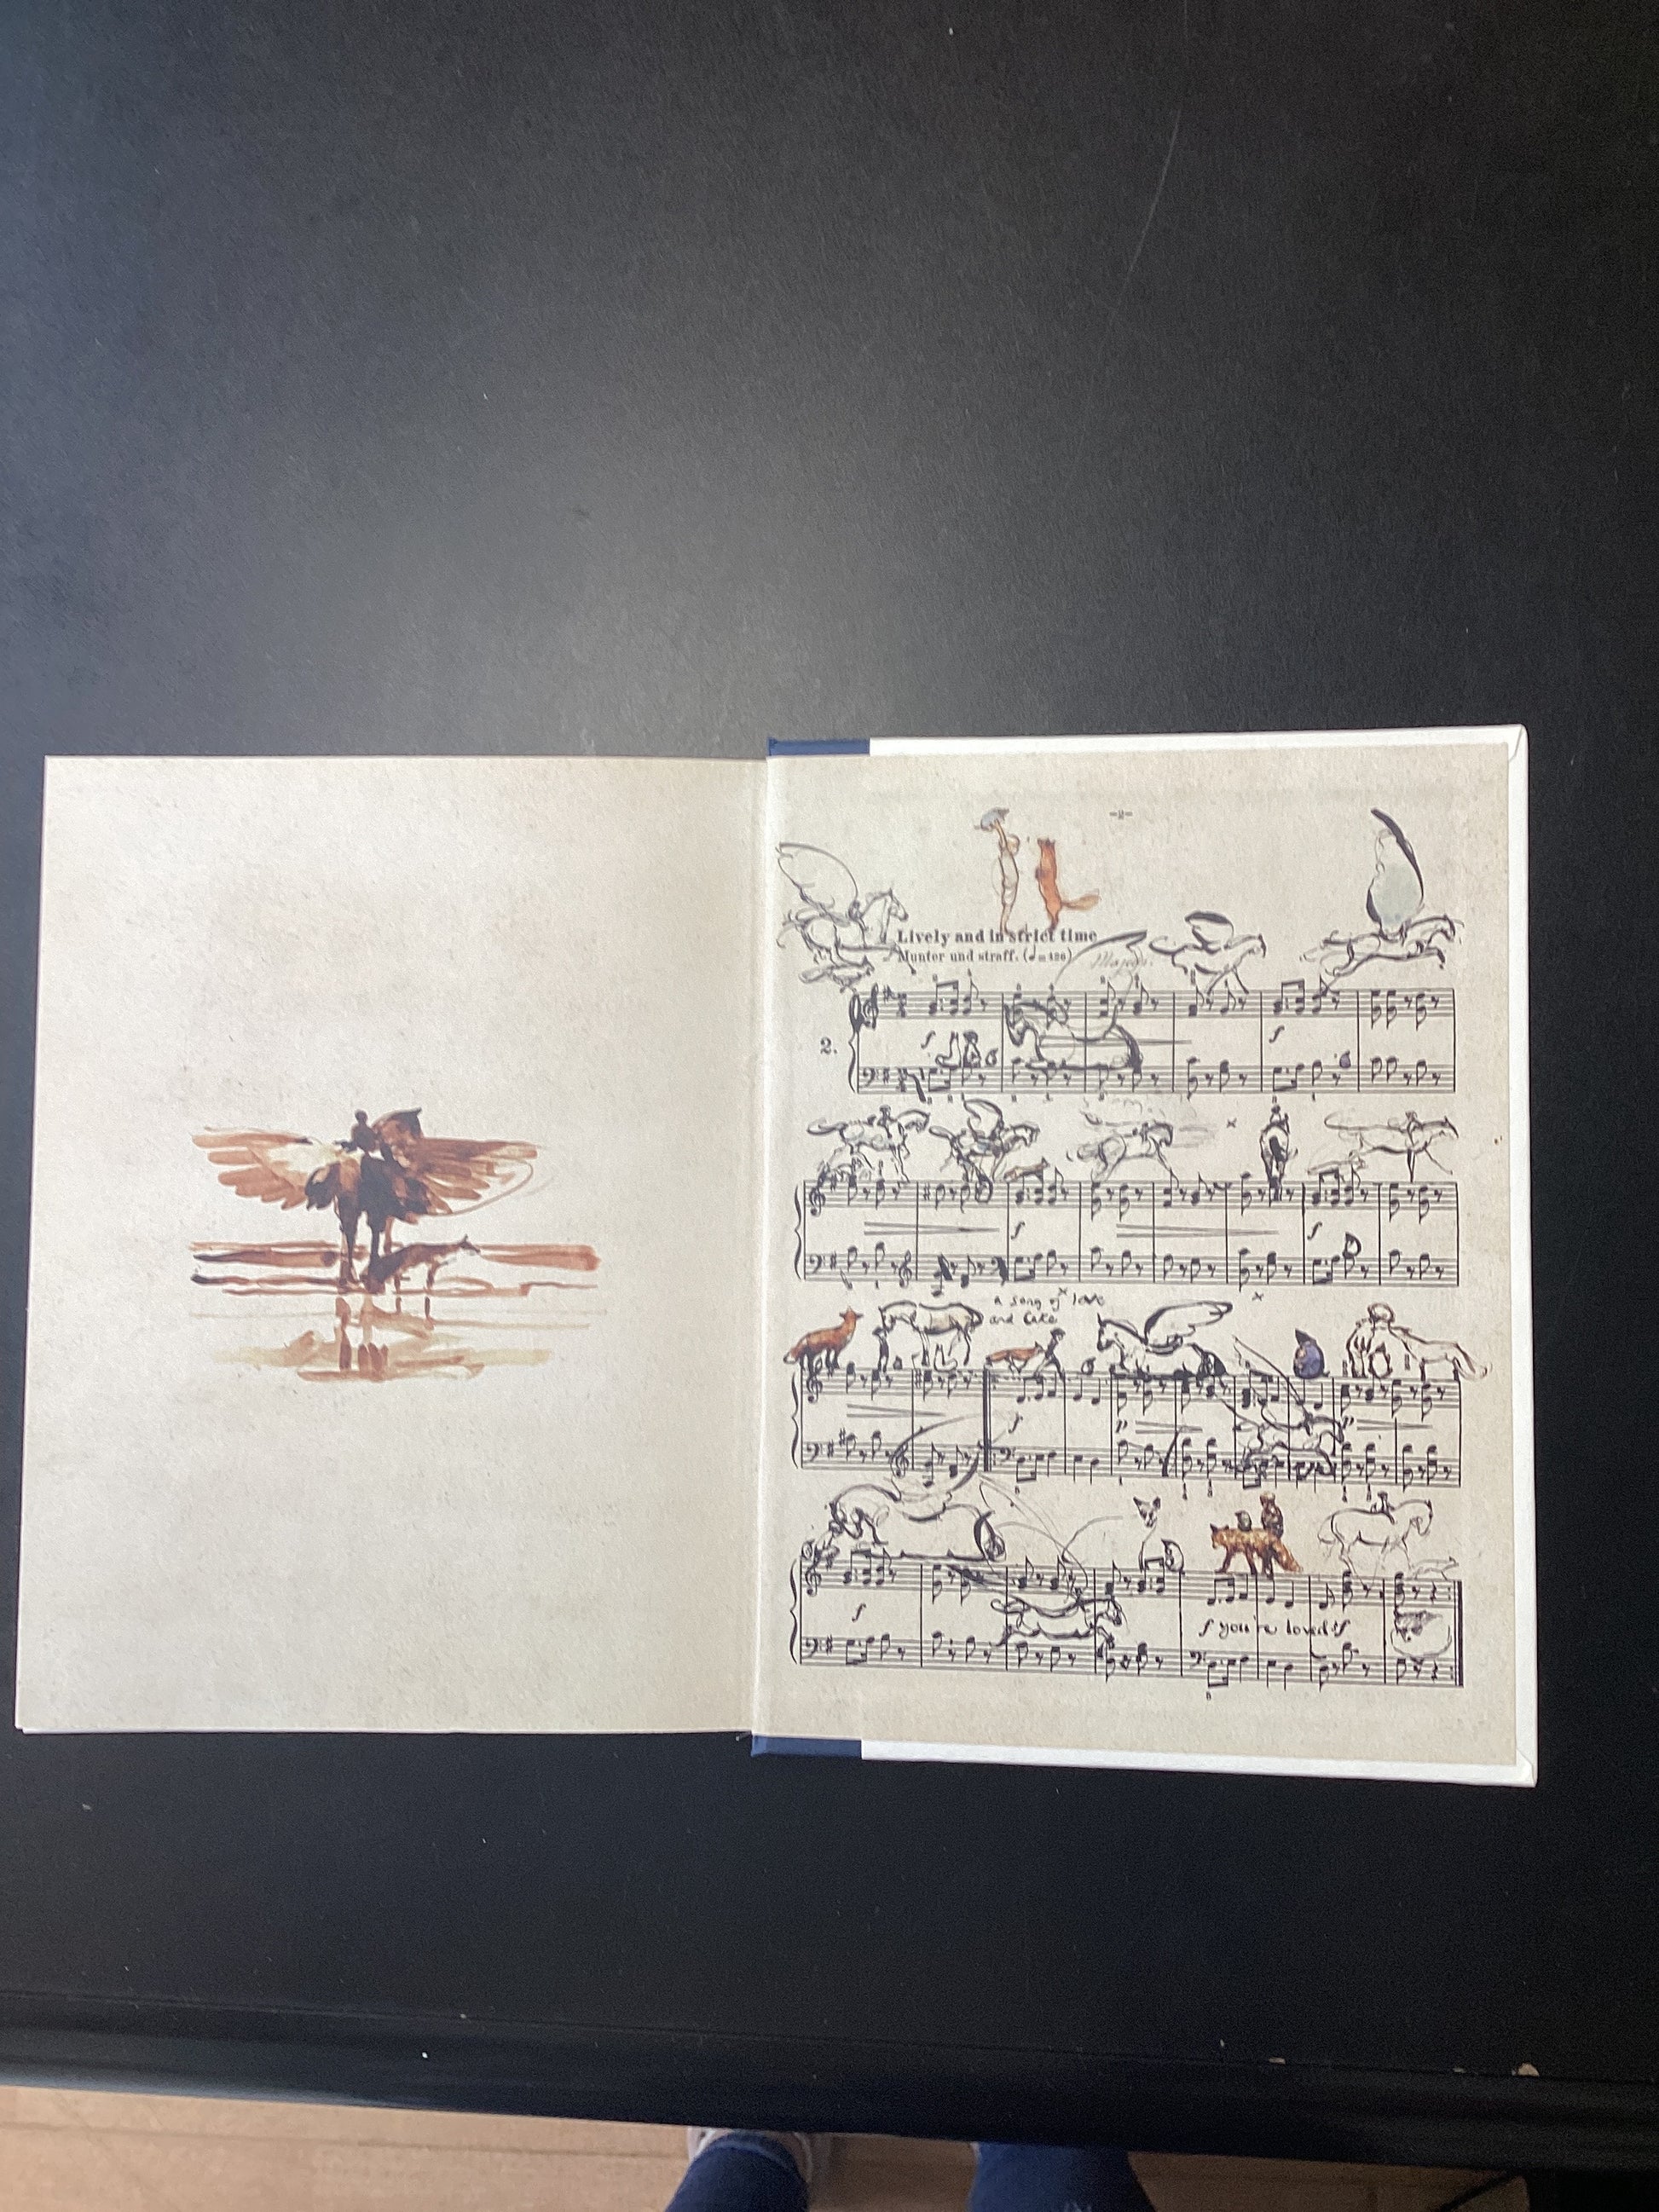 -2-
Lively and in strict time
Munter und straff. (♩=126)
2.
f
f
f
f
a song of love
and cake
f
p
p
f
f you're loved f